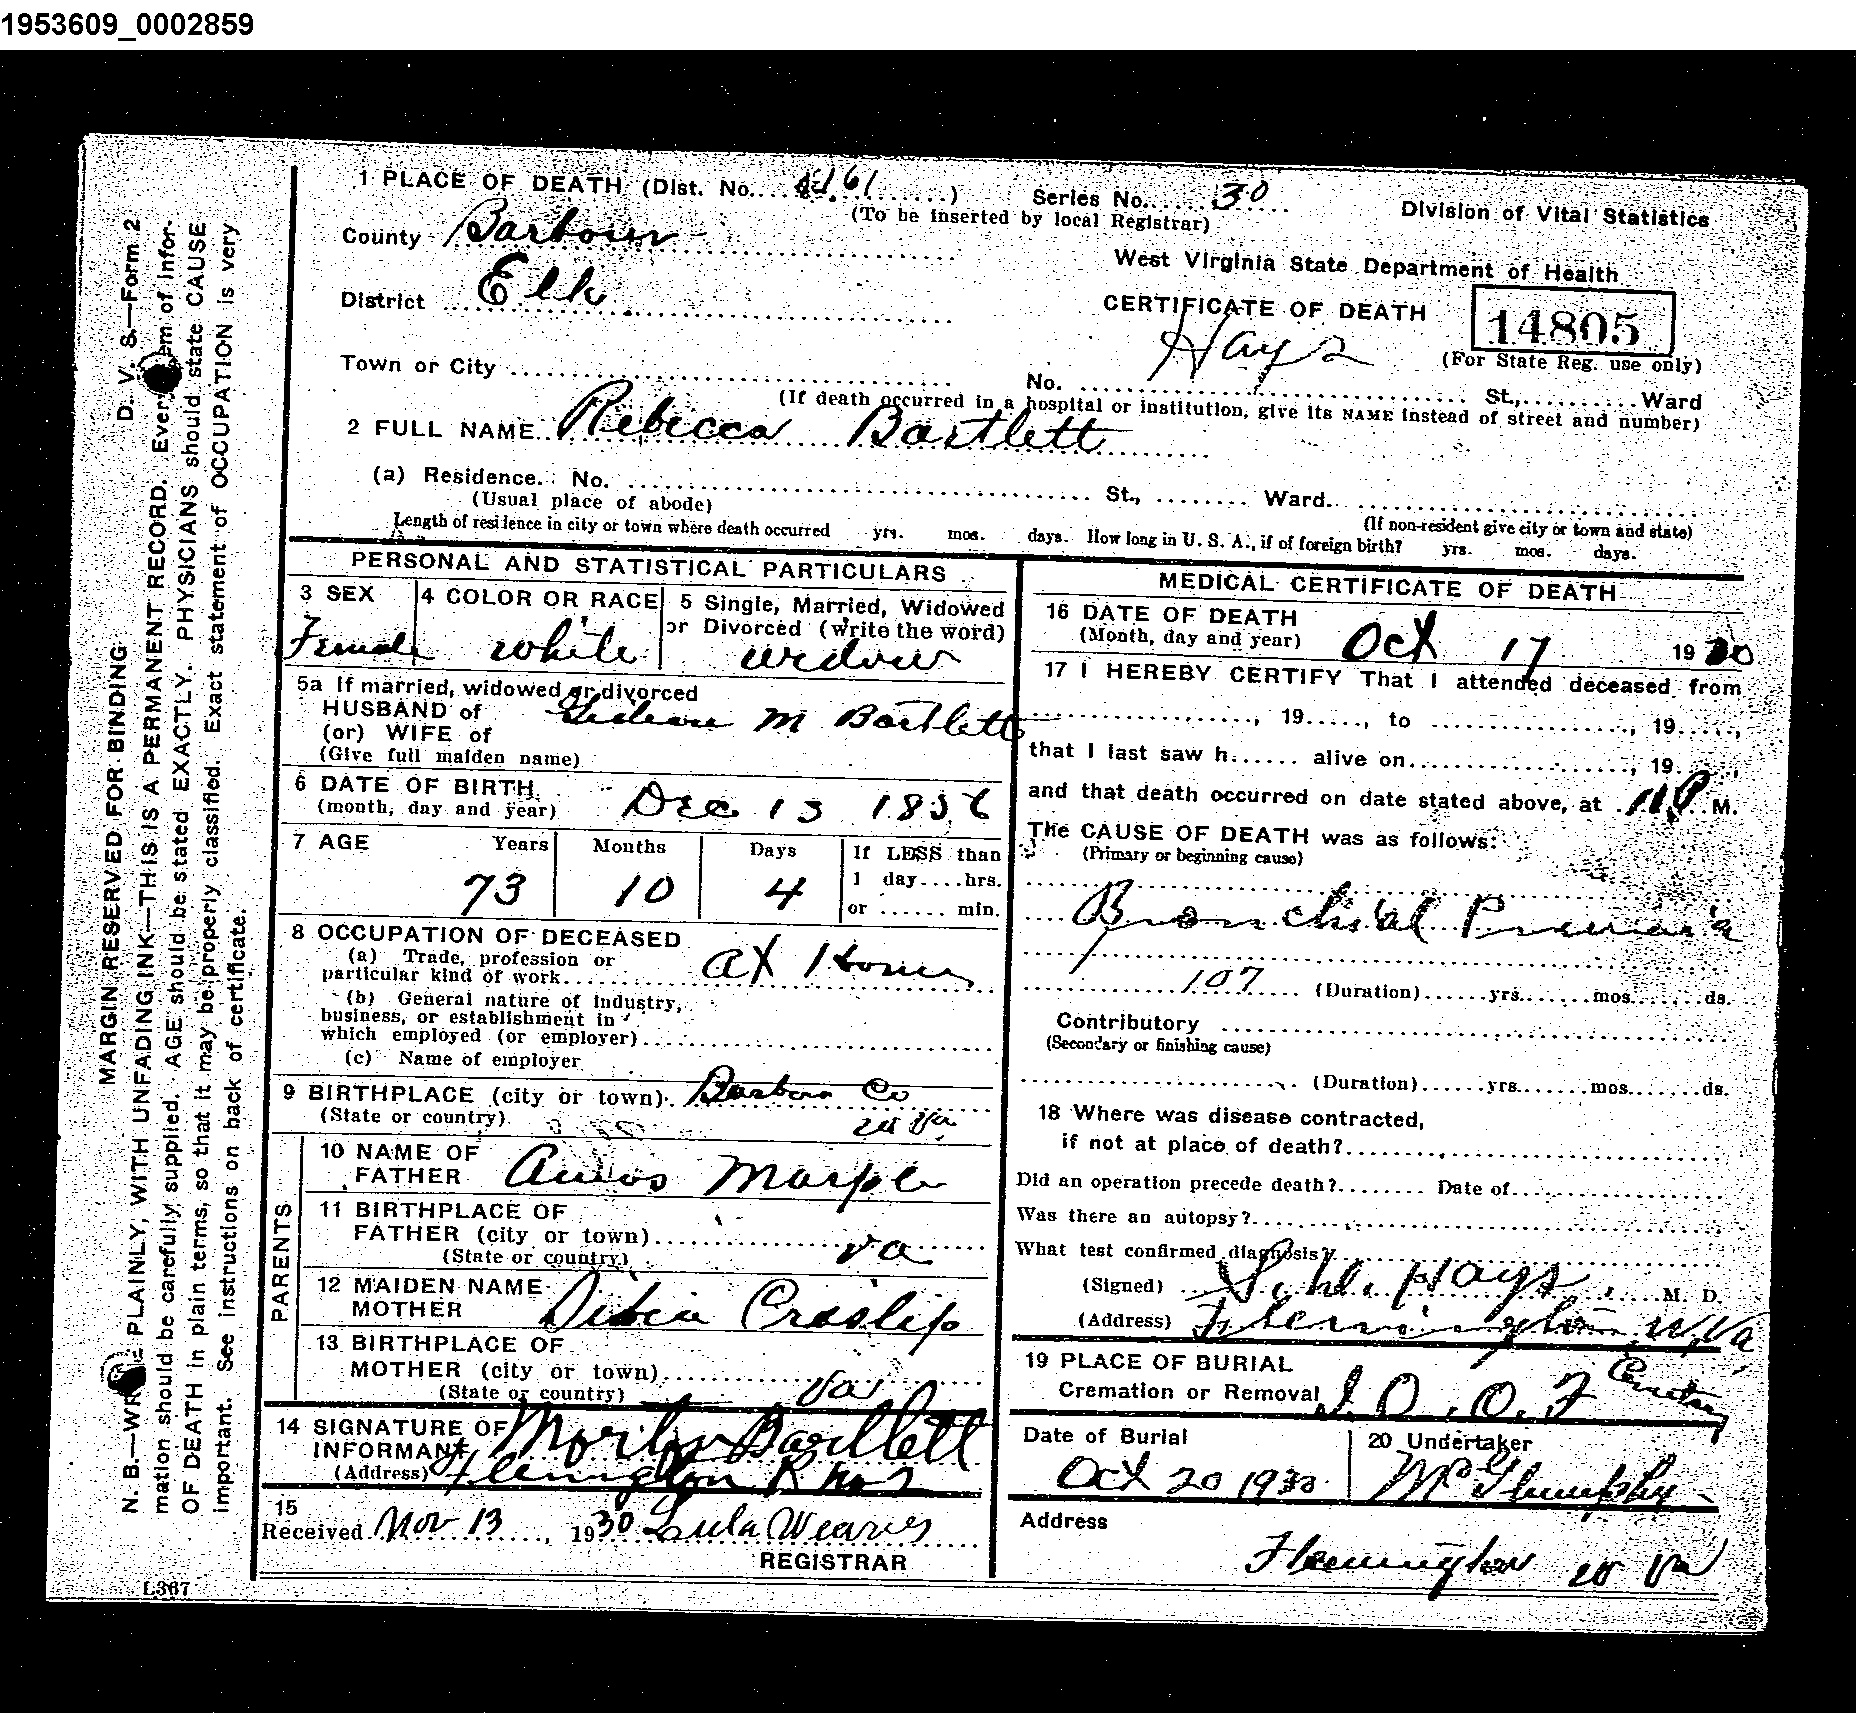 1953609_0002859
1 PLACE OF DEATH (Dist. No. 161) Series No. 30
(To be inserted by local Registrar)
Division of Vital Statistics
County Barbour
West Virginia State Department of Health
District Elk
CERTIFICATE OF DEATH
14805
Hays
(For State Reg. use only)
Town or City
No. St., Ward
(If death occurred in a hospital or institution, give its NAME instead of street and number)
2 FULL NAME Rebecca Bartlett
(a) Residence. No. St., Ward.
(Usual place of abode) (If non-resident give city or town and state)
Length of residence in city or town where death occurred yrs. mos. days. How long in U. S. A., if of foreign birth? yrs. mos. days.
PERSONAL AND STATISTICAL PARTICULARS
3 SEX
Female
4 COLOR OR RACE
white
5 Single, Married, Widowed
or Divorced (write the word)
widow
5a If married, widowed or divorced
HUSBAND of
(or) WIFE of
(Give full maiden name)
M Bartlett
6 DATE OF BIRTH
(month, day and year) Dec 13 1856
7 AGE Years Months Days If LESS than
1 day....hrs.
or ...... min.
73 10 4
8 OCCUPATION OF DECEASED
(a) Trade, profession or
particular kind of work at Home
(b) General nature of industry,
business, or establishment in
which employed (or employer)
(c) Name of employer
9 BIRTHPLACE (city or town) Barbour Co
(State or country) W Va
PARENTS
10 NAME OF
FATHER Amos Marple
11 BIRTHPLACE OF
FATHER (city or town)
(State or country) Va
12 MAIDEN NAME
MOTHER Crislip
13 BIRTHPLACE OF
MOTHER (city or town)
(State or country) Va
14 SIGNATURE OF
INFORMANT Morton Bartlett
(Address) Flemington R No 2
15
Received Nov 13, 1930 Lula Weaver
REGISTRAR
MEDICAL CERTIFICATE OF DEATH
16 DATE OF DEATH
(Month, day and year) Oct 17 1930
17 I HEREBY CERTIFY That I attended deceased from
, 19....., to , 19.....,
that I last saw h...... alive on , 19 ,
and that death occurred on date stated above, at 11 P M.
The CAUSE OF DEATH was as follows:
(Primary or beginning cause)
Bronchial
107 (Duration)......yrs.......mos.......ds.
Contributory
(Secondary or finishing cause)
(Duration)......yrs.......mos.......ds.
18 Where was disease contracted,
if not at place of death?
Did an operation precede death? Date of
Was there an autopsy?
What test confirmed diagnosis?
(Signed) Hays, M. D.
(Address) Flemington, W, Va,
19 PLACE OF BURIAL
Cremation or Removal I. O. O. F Cemetery
Date of Burial
Oct 20 1930
20 Undertaker
Address
Flemington W Va
D. V. S.—Form 2
MARGIN RESERVED FOR BINDING
N. B.—WRITE PLAINLY, WITH UNFADING INK—THIS IS A PERMANENT RECORD. Every item of infor-
mation should be carefully supplied. AGE should be stated EXACTLY. PHYSICIANS should state CAUSE
OF DEATH in plain terms, so that it may be properly classified. Exact statement of OCCUPATION is very
important. See instructions on back of certificate.
L367